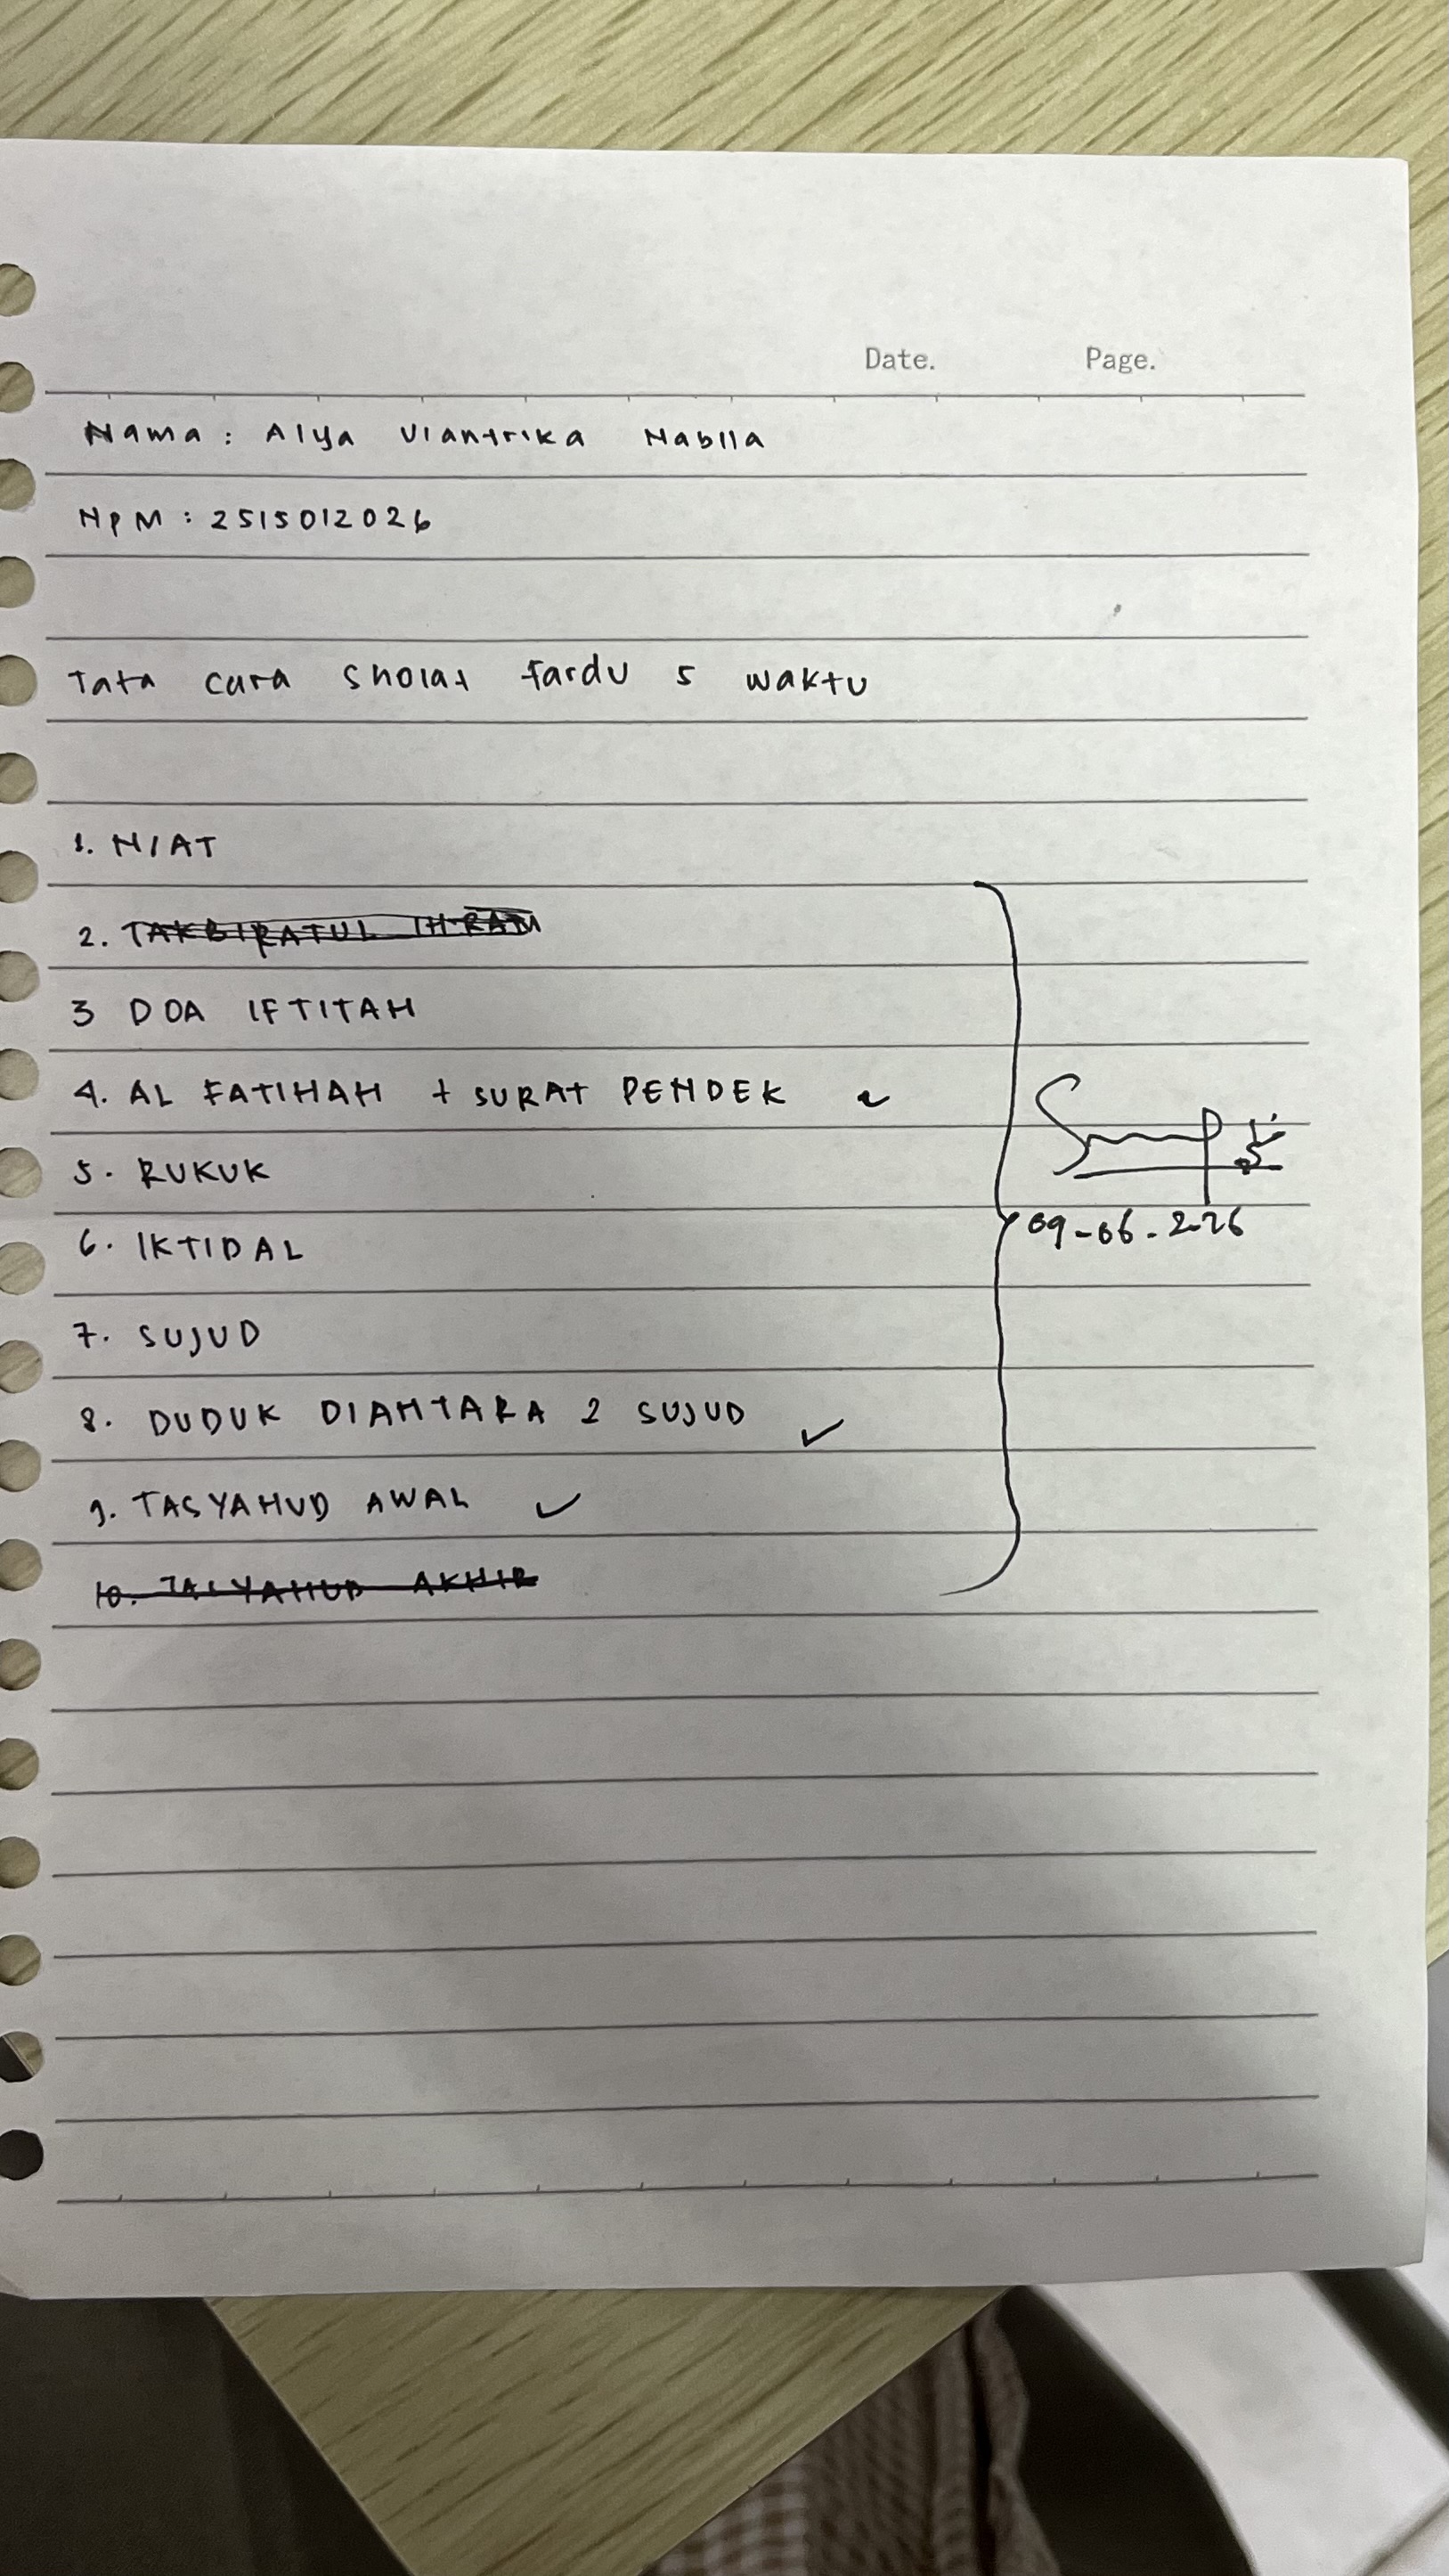 Date. Page.
Nama : Alya Viantrika Nabila
NPM : 2515012026
Tata cara sholat fardu 5 waktu
1. NIAT
2. TAKBIRATUL IHRAM
3 DOA IFTITAH
4. AL FATIHAH + SURAT PENDEK
5. RUKUK
6. IKTIDAL
7. SUJUD
8. DUDUK DIANTARA 2 SUJUD ✓
9. TASYAHUD AWAL ✓
10. TASYAHUD AKHIR
09-06-2026